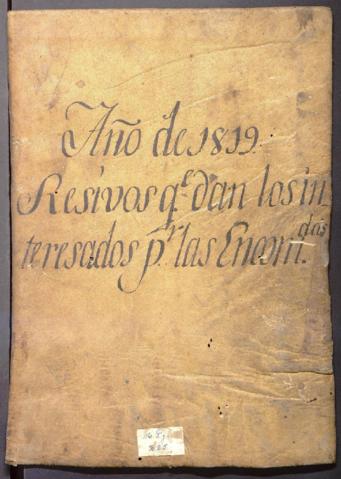 Año de 1819.
Resivos q.e dan los in
teresados p.r las Encom.das